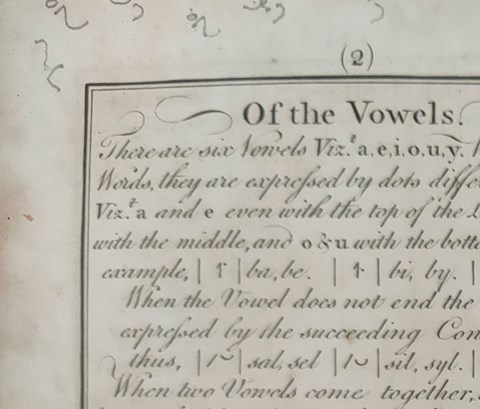 (2)
Of the Vowels.
There are six Vowels Viz.t a, e, i, o, u, y.
Words, they are expreſsed by dots
Viz.t a and e even with the top of the
with the middle, and o & u with the
example, | | ba, be. | | bi, by. |
When the Vowel does not end the
expreſsed by the succeeding
thus, | | sal, sel | | sil, syl. |
When two Vowels come together,